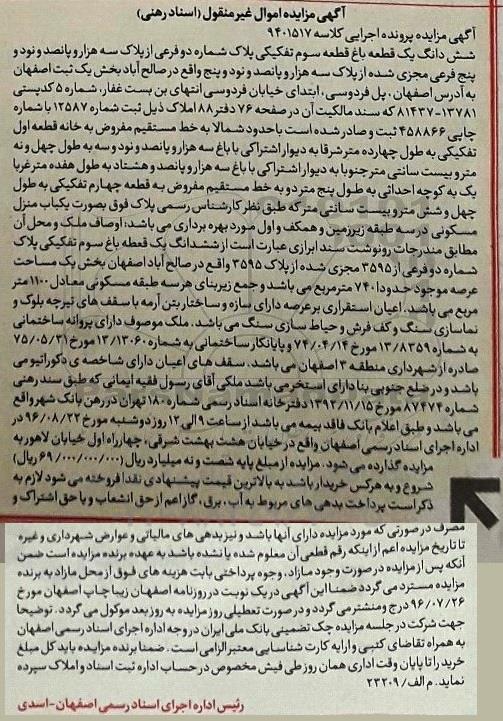 آگهی مزایده اموال غیرمنقول (اسناد رهنی)
آگهی مزایده پرونده اجرایی کلاسه ۹۴۰۱۵۱۷
شش دانگ یک قطعه باغ قطعه سوم تفکیکی پلاک شماره دو فرعی از پلاک سه هزار و پانصد و نود و
پنج فرعی مجزی شده از پلاک سه هزار و پانصد و نود و پنج واقع در صالح آباد بخش یک ثبت اصفهان
به آدرس اصفهان، پل فردوسی، ابتدای خیابان فردوسی انتهای بن بست غفار، شماره ۵ کدپستی
۸۱۴۳۷-۱۳۷۸۱ که سند مالکیت آن در صفحه ۷۶ دفتر ۸۸ املاک ذیل ثبت شماره ۱۲۵۸۷ با شماره
چاپی ۴۵۸۸۶۶ ثبت و صادر شده است با حدود شمالا به خط مستقیم مفروض به خانه قطعه اول
تفکیکی به طول چهارده متر شرقا به دیوار اشتراکی با باغ سه هزار و پانصد و نود و سه به طول چهل و نه
متر و بیست سانتی متر جنوبا به دیوار اشتراکی با باغ سه هزار و پانصد و هشتاد به طول هفده متر غربا
یک به کوچه احداثی به طول پنج متر دو به خط مستقیم مفروض به قطعه چهارم تفکیکی به طول
چهل و شش متر و بیست سانتی متر که طبق نظر کارشناس رسمی پلاک فوق بصورت یکباب منزل
مسکونی در سه طبقه زیرزمین و همکف و اول مورد بهره برداری می باشد، اوصاف ملک و محل آن
مطابق مندرجات رونوشت سند ابرازی عبارت است از ششدانگ یک قعطه باغ سوم تفکیکی پلاک
شماره دو فرعی از ۳۵۹۵ مجزی شده از پلاک ۳۵۹۵ واقع در صالح آباد اصفهان بخش یک مساحت
عرصه موجود حدودا ۷۴۰ مترمربع می باشد و جمع زیربنای هر سه طبقه مسکونی معادل ۱۱۰۰ متر
مربع می باشد. اعیان استقراری بر عرصه دارای سازه و ساختار بتن آرمه با سقف های تیرچه بلوک و
نماسازی سنگ و کف فرش و حیاط سازی سنگ می باشد. ملک موصوف دارای پروانه ساختمانی
به شماره ۱۳/۸۳۵۹ مورخ ۷۴/۰۴/۱۴ و پایانکار ساختمانی به شماره ۱۳/۱۳۰۶۰ مورخ ۷۵/۰۵/۳۱
صادره از شهرداری منطقه ۳ اصفهان می باشد، سقف های اعیان دارای شاخصه ی دکوراتیو می
باشد و در ضلع جنوبی بنا دارای استخر می باشد ملکی آقای رسول فقیه ایمانی که طبق سند رهنی
شماره ۸۷۴۷۴ مورخ ۱۳۹۳/۱۱/۱۵ دفترخانه اسناد رسمی شماره ۱۸۰ تهران در رهن بانک شهر واقع
می باشد و طبق اعلام بانک فاقد بیمه می باشد از ساعت ۹ الی ۱۲ روز دوشنبه مورخ ۹۶/۰۸/۲۲ در
اداره اجرای اسناد رسمی اصفهان واقع در خیابان هشت بهشت شرقی، چهارراه اول خیابان لاهور به
مزایده گذارده می شود. مزایده از مبلغ پایه شصت و نه میلیارد ریال (۶۹/۰۰۰/۰۰۰/۰۰۰ ریال)
شروع و به هر کس خریدار باشد به بالاترین قیمت پیشنهادی نقدا فروخته می شود لازم به
ذکر است پرداخت بدهی های مربوط به آب، برق، گاز اعم از حق انشعاب و یا حق اشتراک و
مصرف در صورتی که مورد مزایده دارای آنها باشد و نیز بدهی های مالیاتی و عوارض شهرداری و غیره
تا تاریخ مزایده اعم از اینکه رقم قطعی آن معلوم شده یا نشده باشد به عهده برنده مزایده است ضمن
آنکه پس از مزایده در صورت وجود مازاد، وجوه پرداختی بابت هزینه های فوق از محل مازاد به برنده
مزایده مسترد می گردد ضمنا این آگهی در یک نوبت در روزنامه اصفهان زیبا چاپ اصفهان مورخ
۹۶/۰۷/۲۶ درج و منتشر می گردد و در صورت تعطیلی روز مزایده به روز بعد موکول می گردد. توضیحا
جهت شرکت در جلسه مزایده چک تضمینی بانک ملی ایران در وجه اداره اجرای اسناد رسمی اصفهان
به همراه تقاضای کتبی و ارایه کارت شناسایی معتبر الزامی است. ضمنا برنده مزایده باید کل مبلغ
خرید را تا پایان وقت اداری همان روز طی فیش مخصوص در حساب اداره ثبت اسناد و املاک سپرده
نماید. م الف/ ۲۳۲۰۹
رئیس اداره اجرای اسناد رسمی اصفهان-اسدی